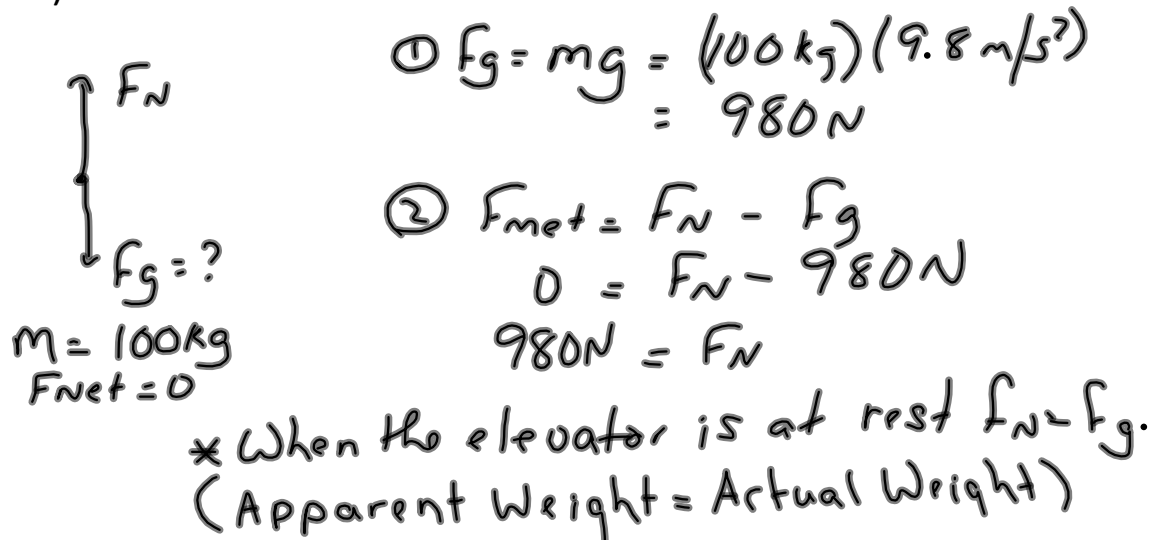 F_N
Fg = ?
m = 100kg
FNet = 0
① Fg = mg = (100kg)(9.8 m/s²)
= 980N
② Fnet = F_N - Fg
0 = F_N - 980N
980N = F_N
* When the elevator is at rest F_N = Fg.
(Apparent Weight = Actual Weight)